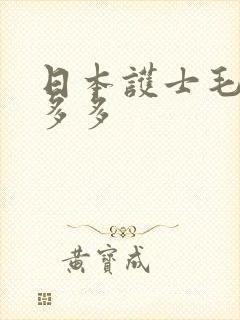 日本護士毛
多多
黃寶成